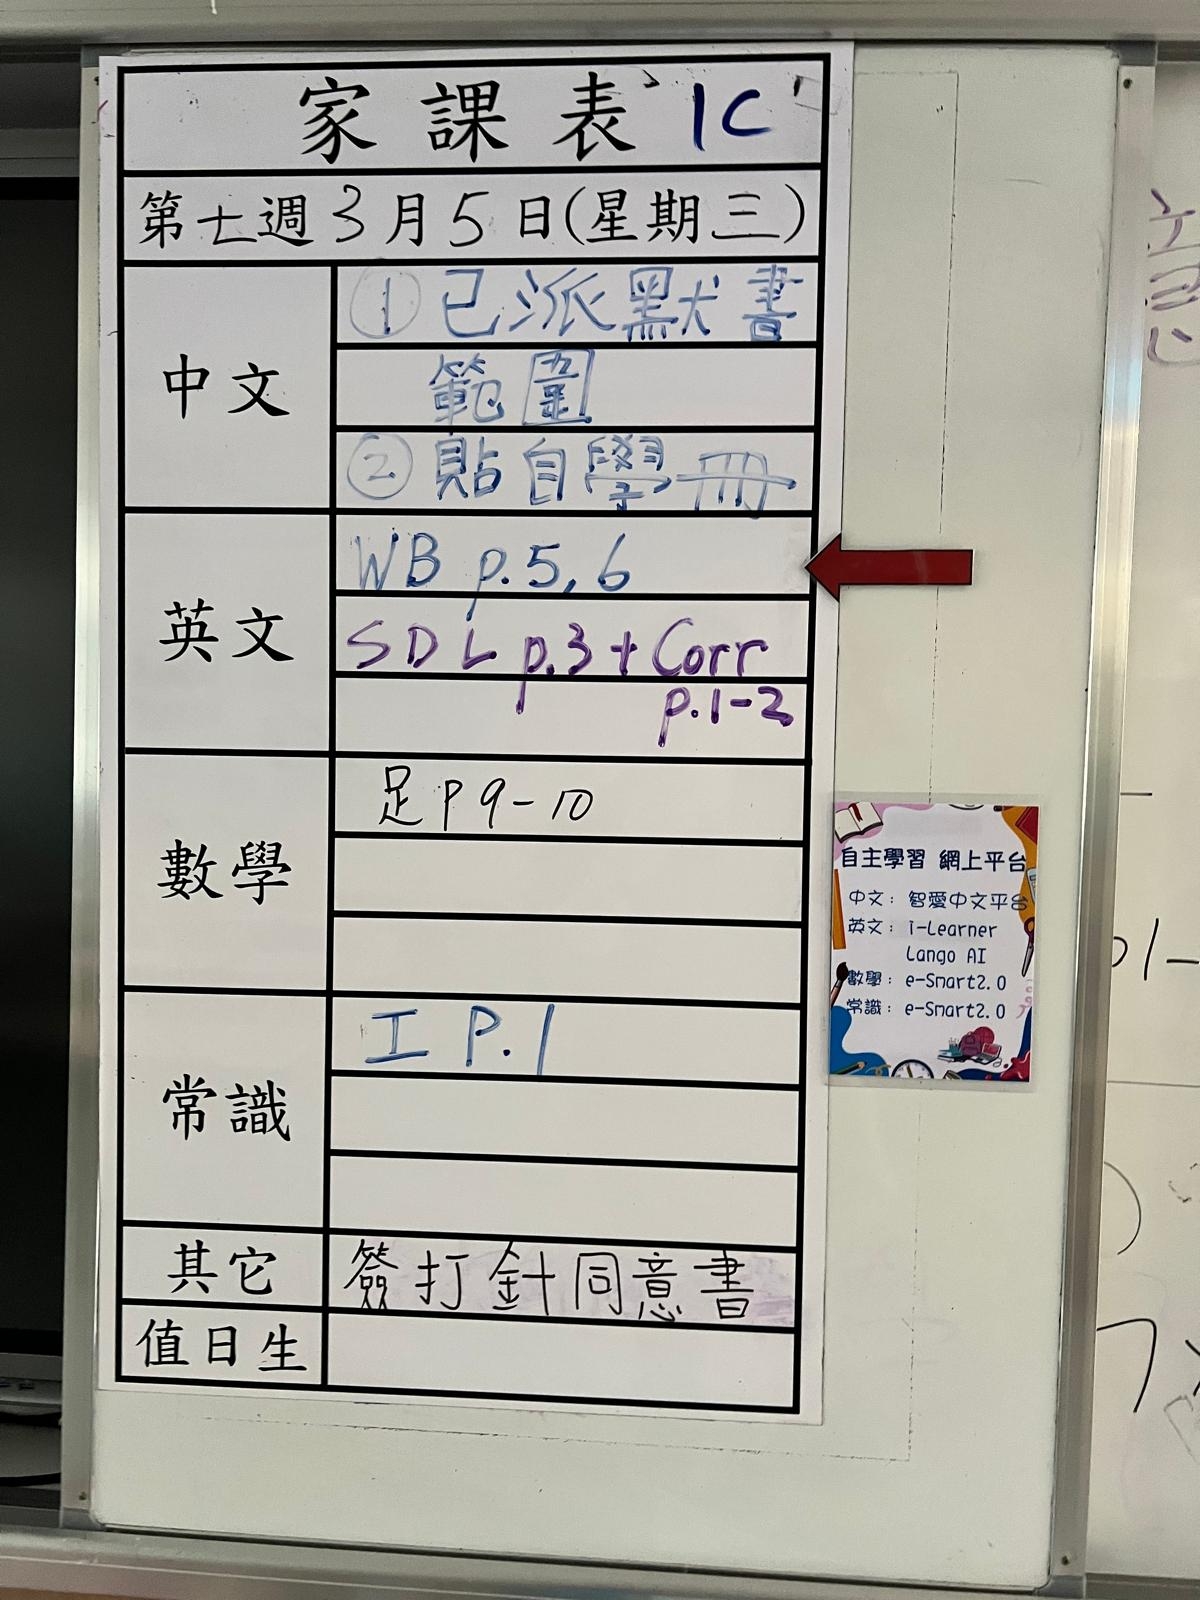 家課表 1C
第七週3月5日(星期三)
中文
①已派默書
範圍
②貼自學冊
英文
WB p.5,6
SDL p.3+Corr
p.1-2
數學
足P9-10
常識
工 P.1
其它
簽打針同意書
值日生
自主學習 網上平台
中文: 智愛中文平台
英文: i-Learner
Lango AI
數學: e-Smart2.0
常識: e-Smart2.0